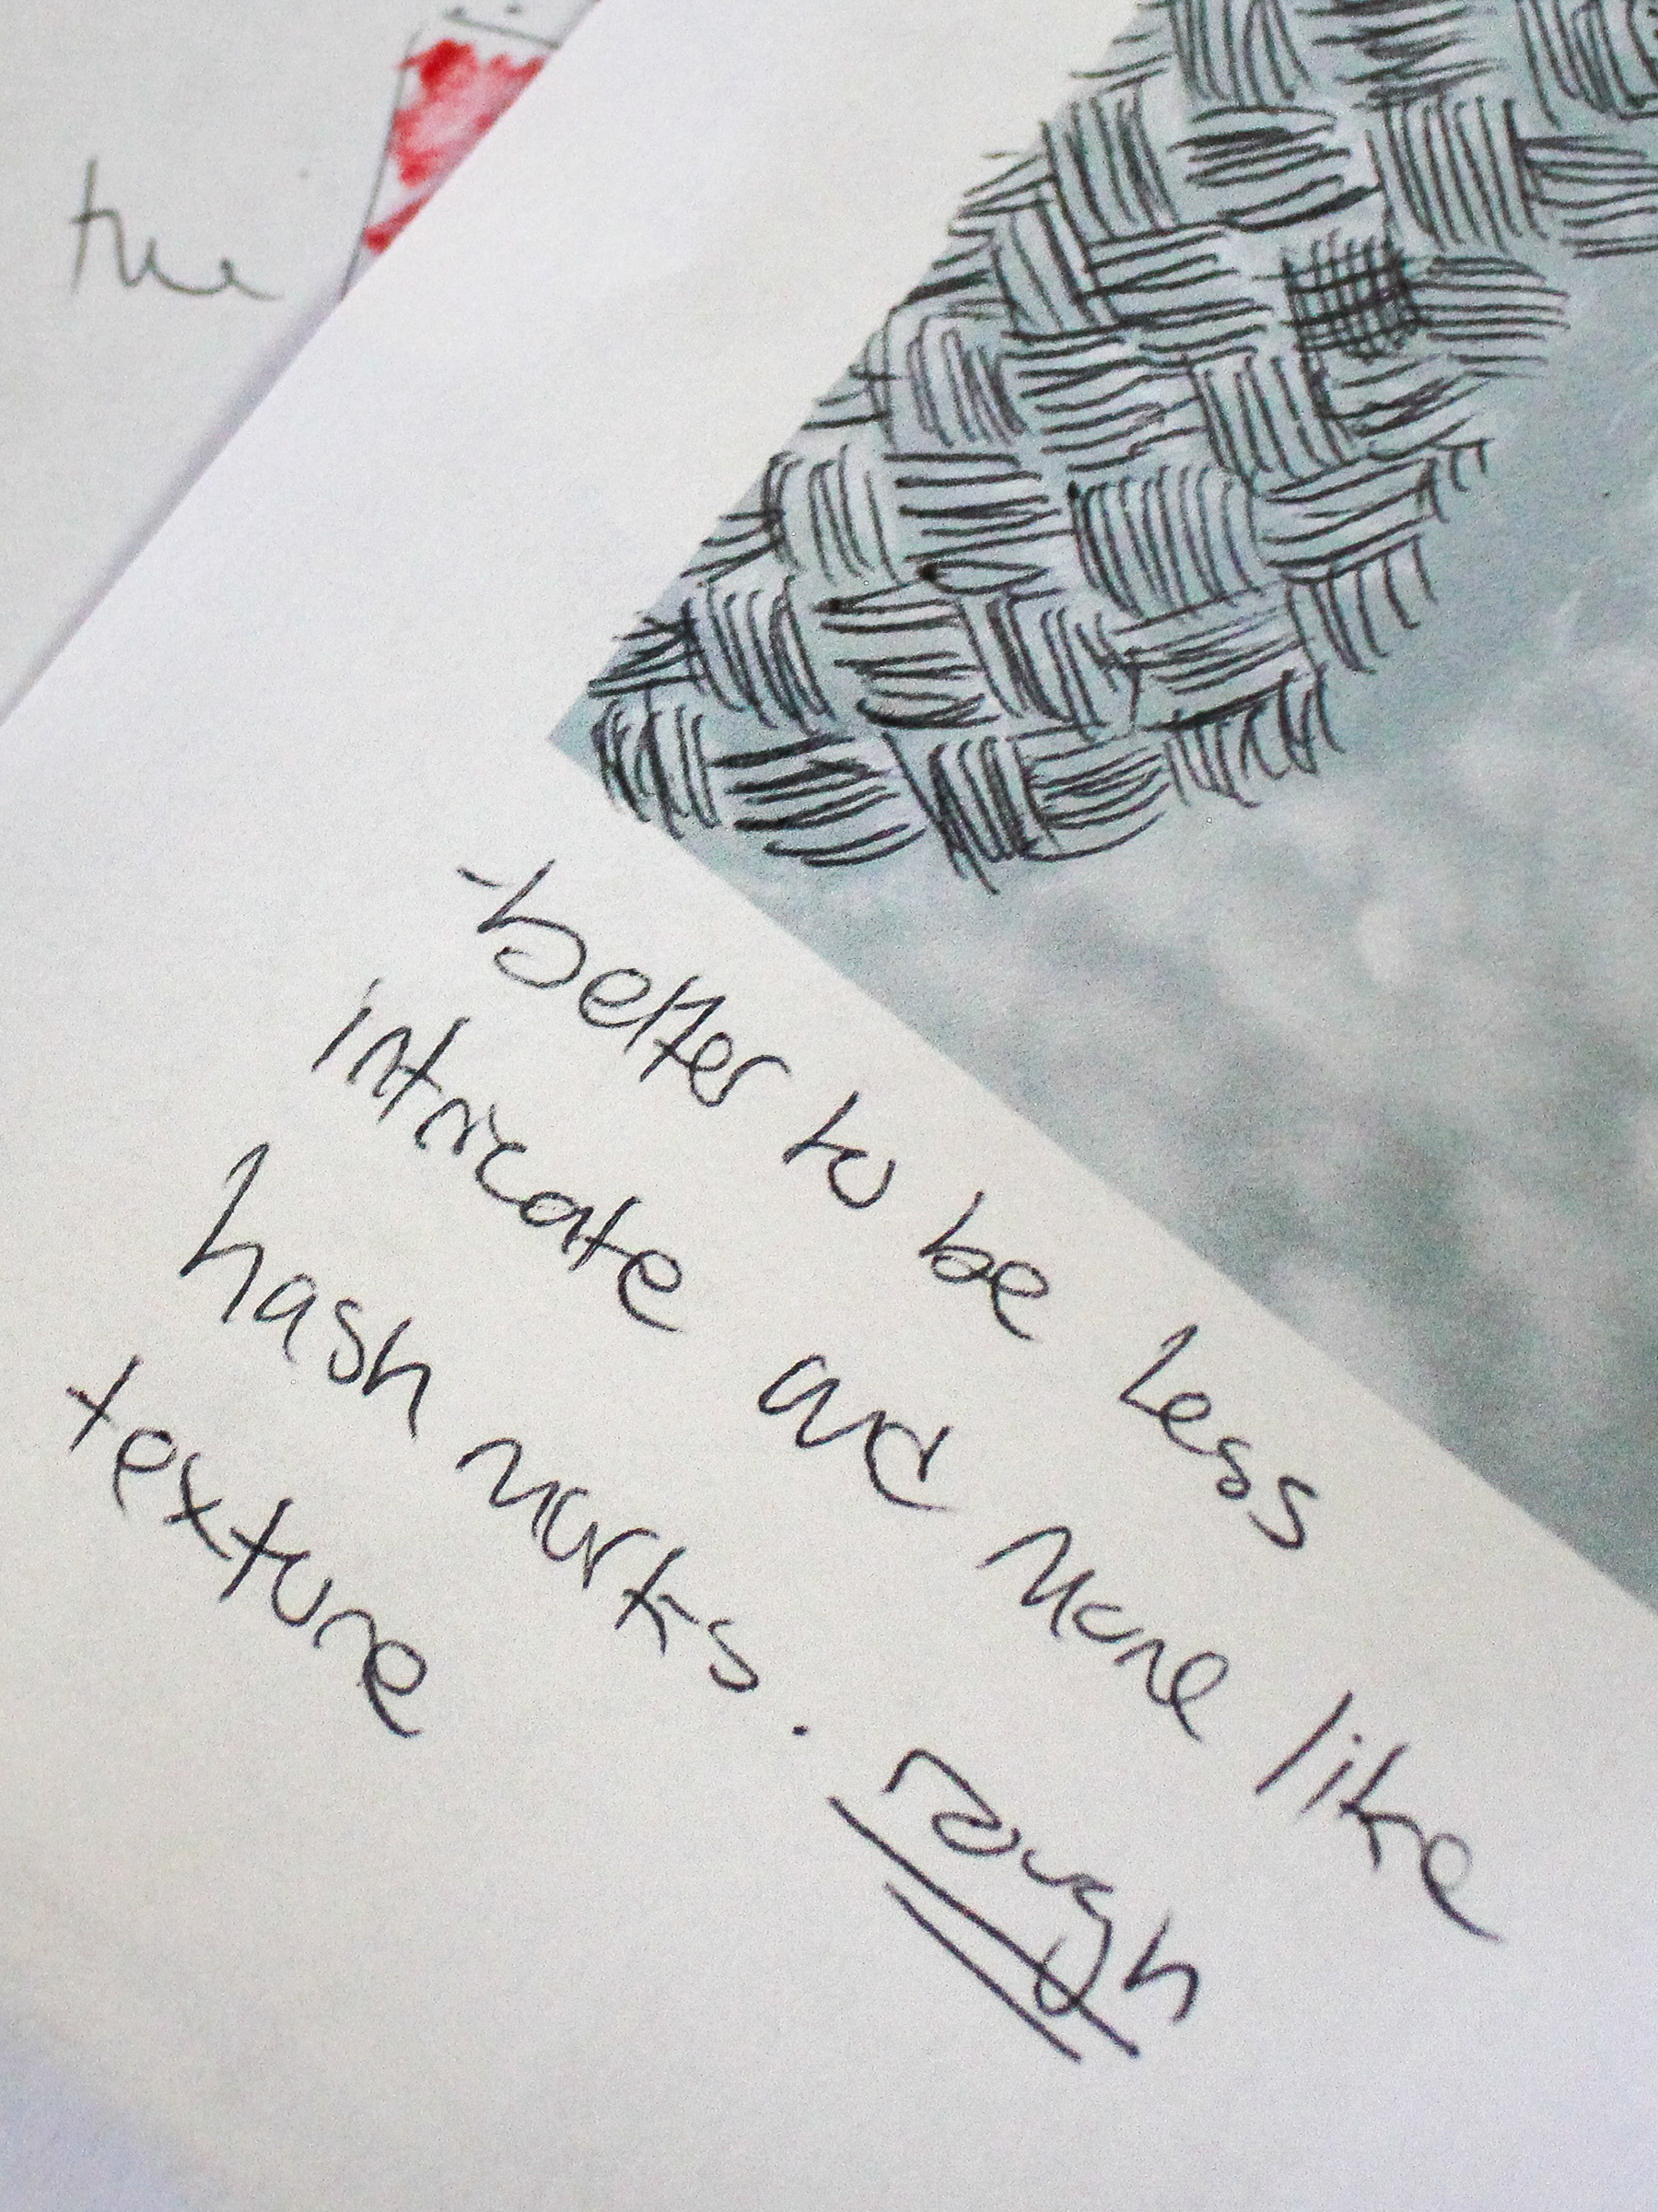 -better to be less
intricate and more like
hash marks. rough
texture